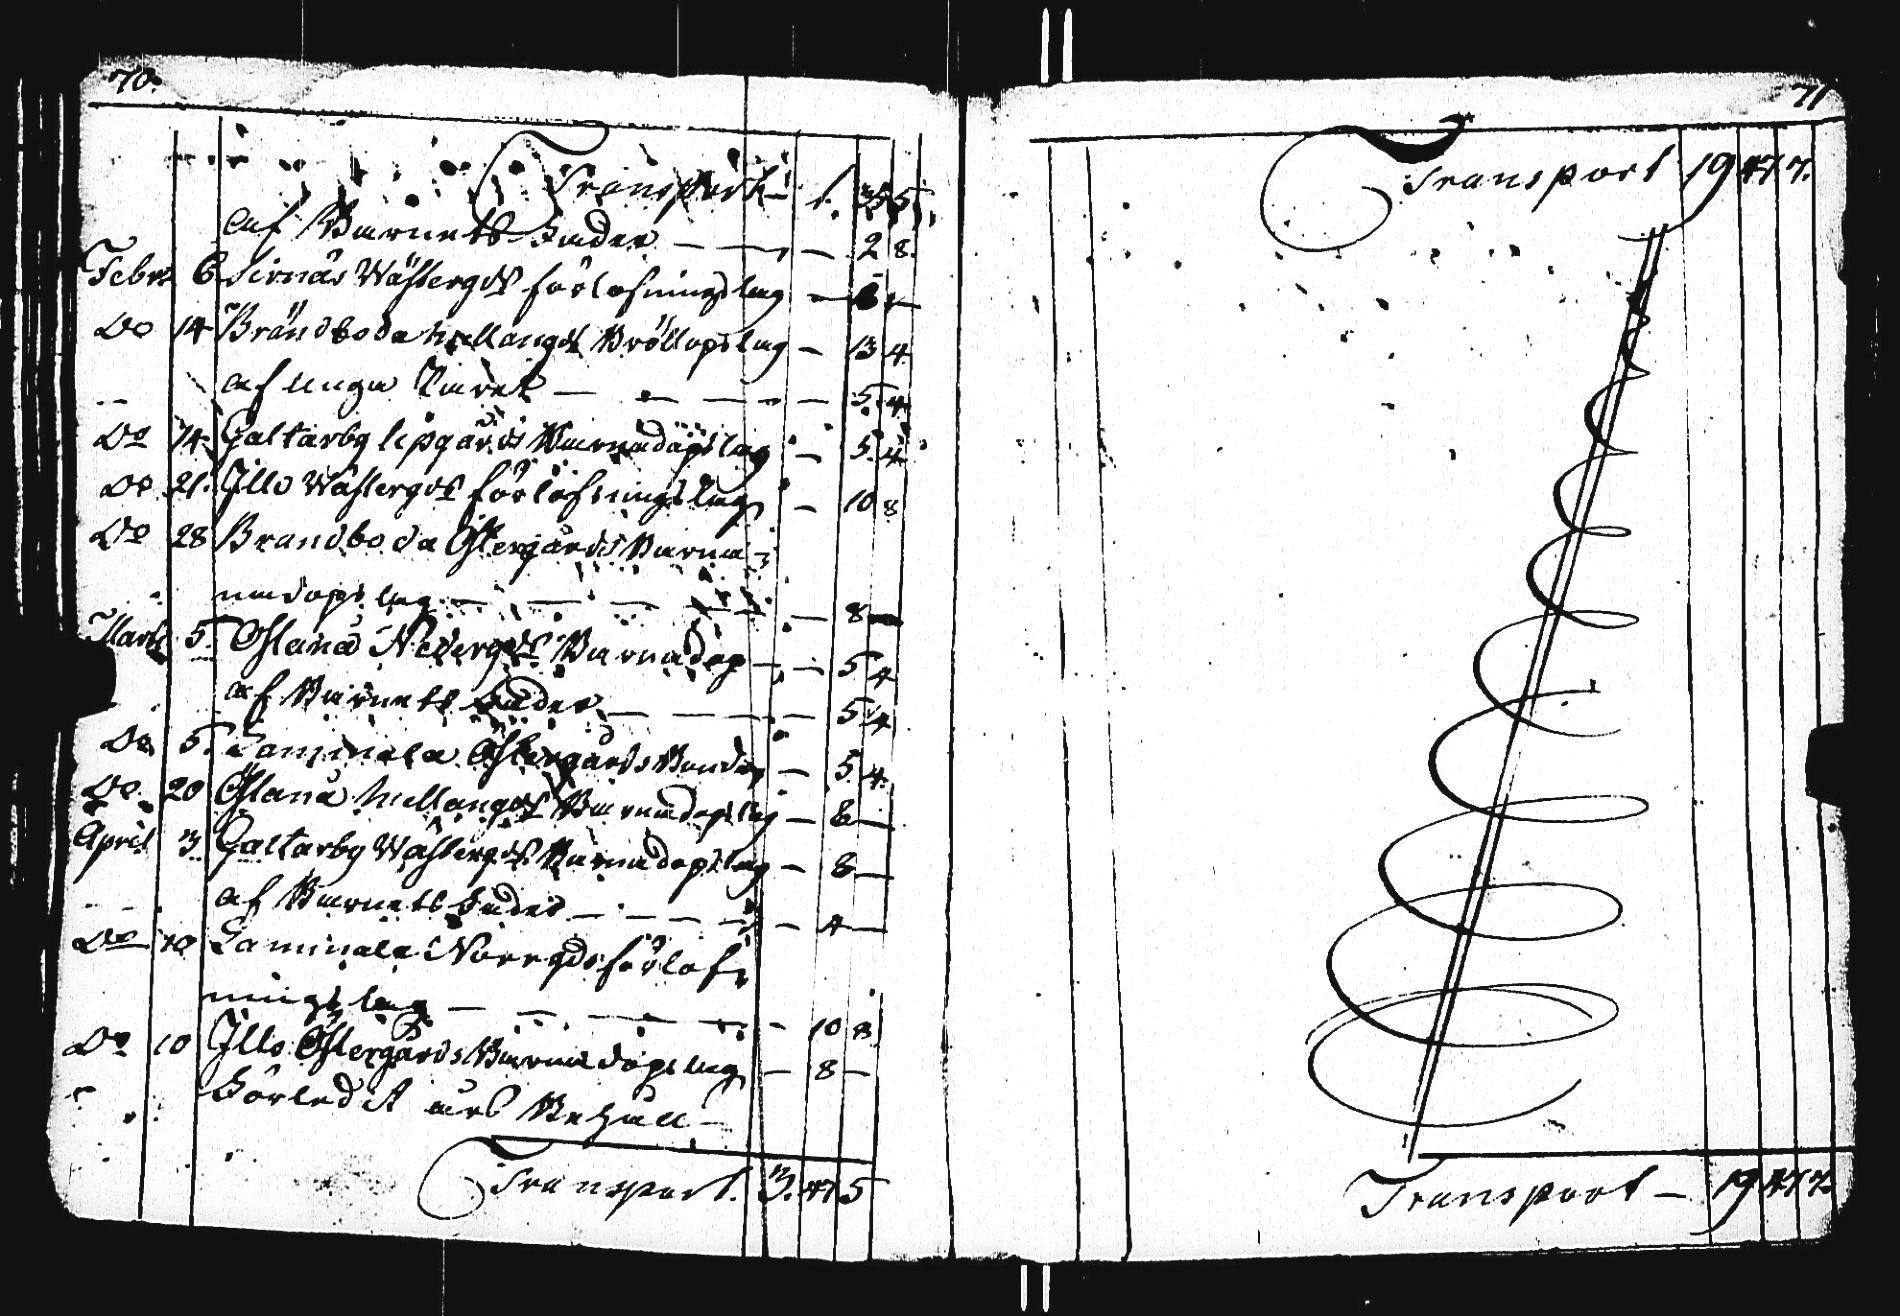 70.
Transport 1. 35 5.
af Barnets Fader — — — 2 8.
Febr. 6 Wästergds förlofningslag —
Do 14 Brändboda Mellangds Bröllopslag — 13 4.
af unga Paret — — — — 5. 4.
Do 14. Galtarby Barnadopslag — 5. 4.
Do 21. Illo Wästergds förlofningslag — 10 8
Do 28 Brandboda Östergårds Barna-
nadopslag — — — — 8 —
Marti 5. Östanå Nedergds Barnadop — — 5 4
af Barnets Fader — — — — 5 4
Do 5. Laminala Östergårds — 5. 4.
Do 20 Östanå Mellangds Barnadopslag — 8 —
April 3. Galtarby Wästergds Barnadopslag — 8 —
af Barnets Fader — — — — 4 —
Do 10 Laminala Norrgds förlof-
ningslag — — — — 10 8.
Do 10 Illo Östergårds Barnadopslag — 8 —
Transport. 3. 47 5
71
Transport 19 47 7.
Transport — 19 47 7.